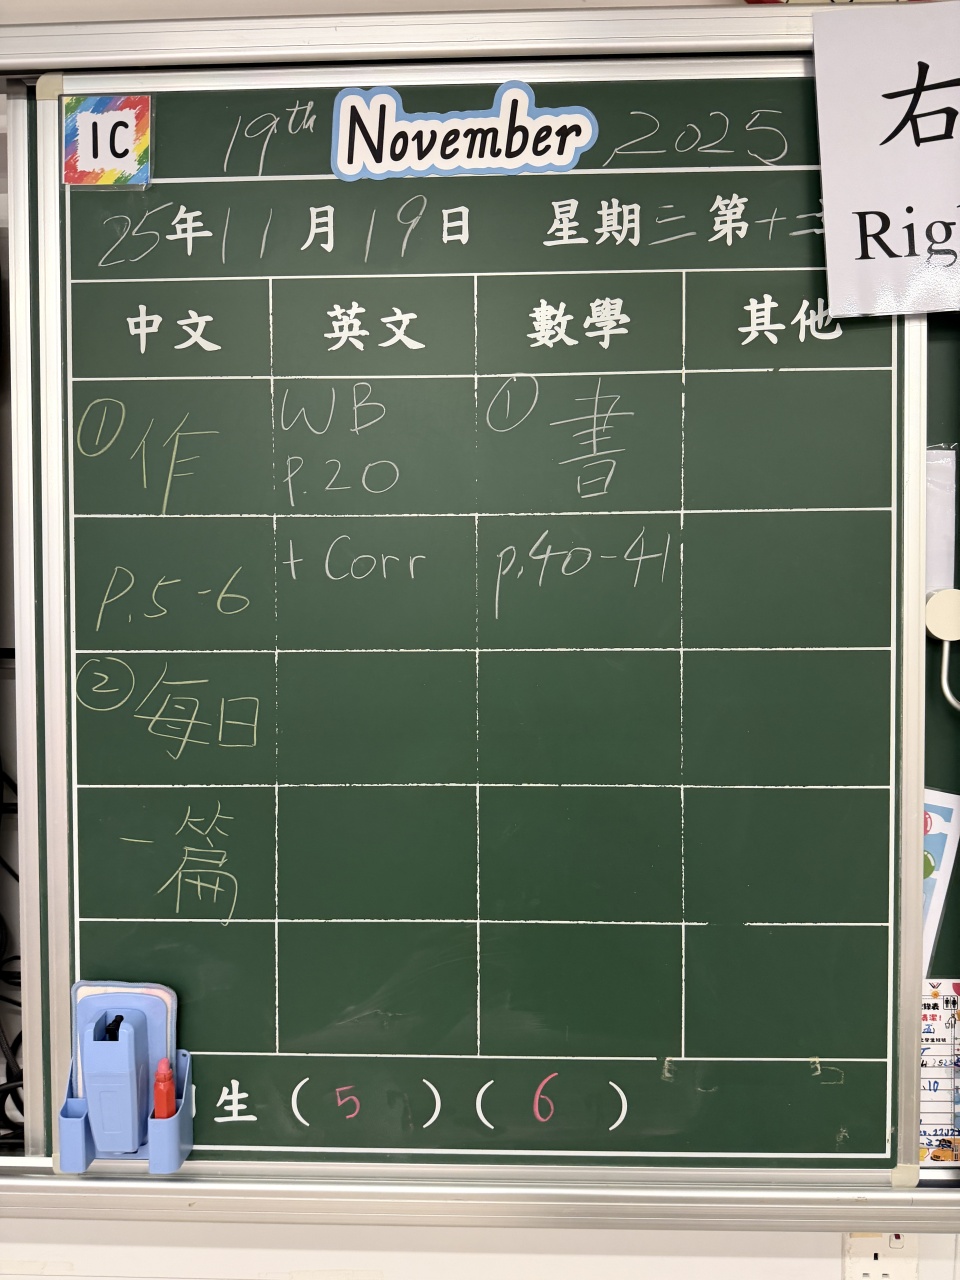 1C
19th November 2025
25年11月19日 星期三 第十二
右
Rig
中文 英文 數學 其他
① 作
WB
p.20
① 書
P.5-6
+ Corr
p.40-41
② 每日
一篇
生 ( 5 ) ( 6 )